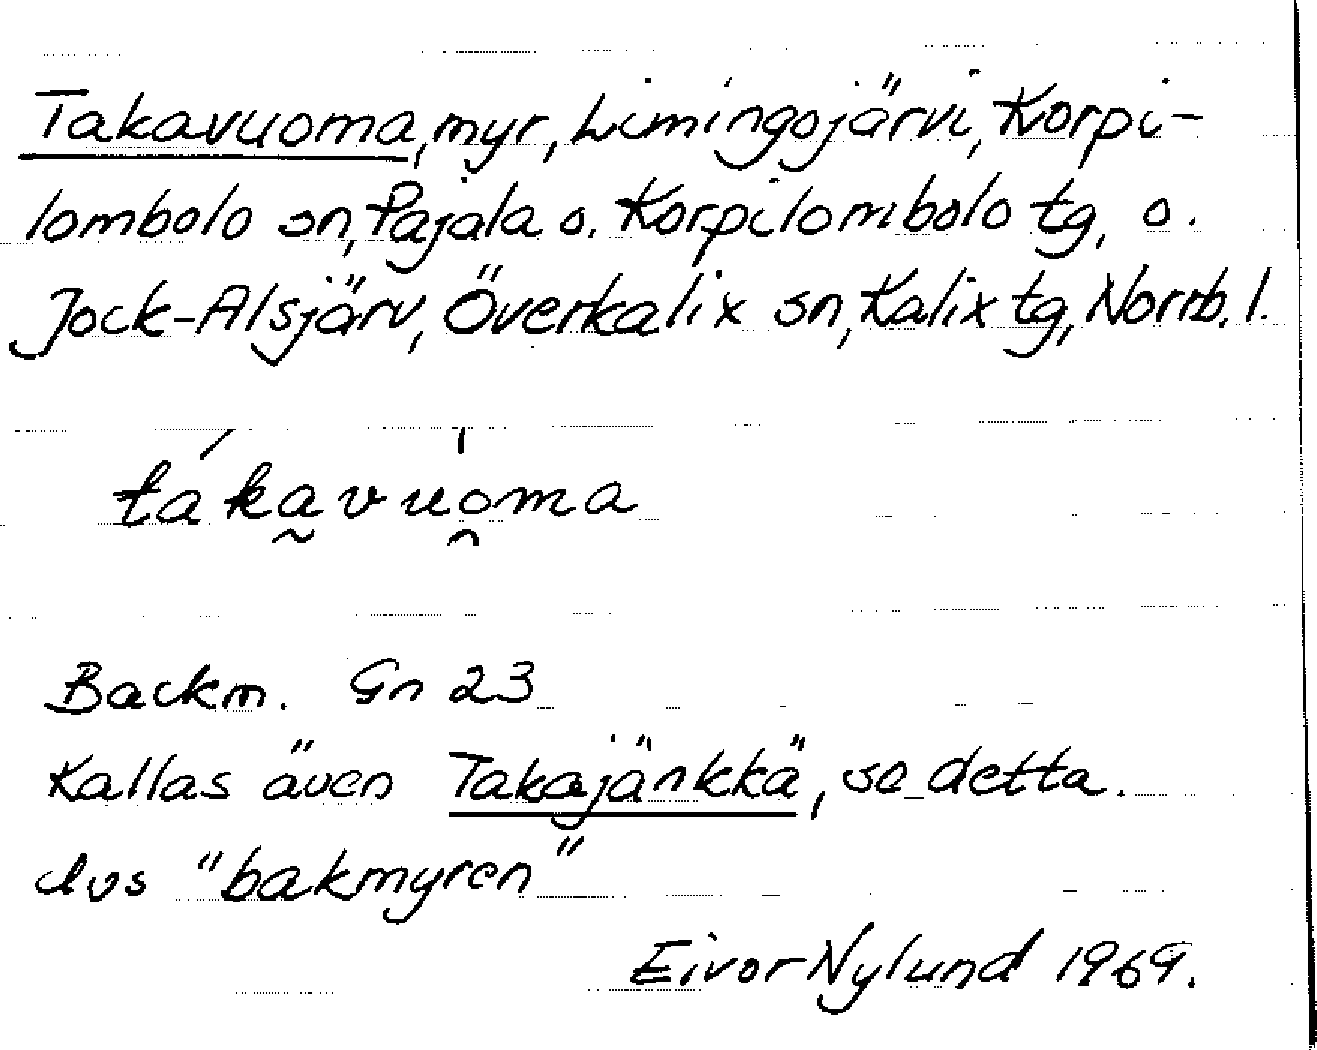 Takavuoma, myr, Limingojärvi, Korpi-
lombolo sn, Pajala o. Korpilombolo tg, o.
Jock-Alsjärv, Överkalix sn, Kalix tg, Norrb. l.
tákа̰vuo̯ma
Backm. Gn 23
Kallas även Takajänkkä, se detta.
dvs "bakmyren"
Eivor Nylund 1969.